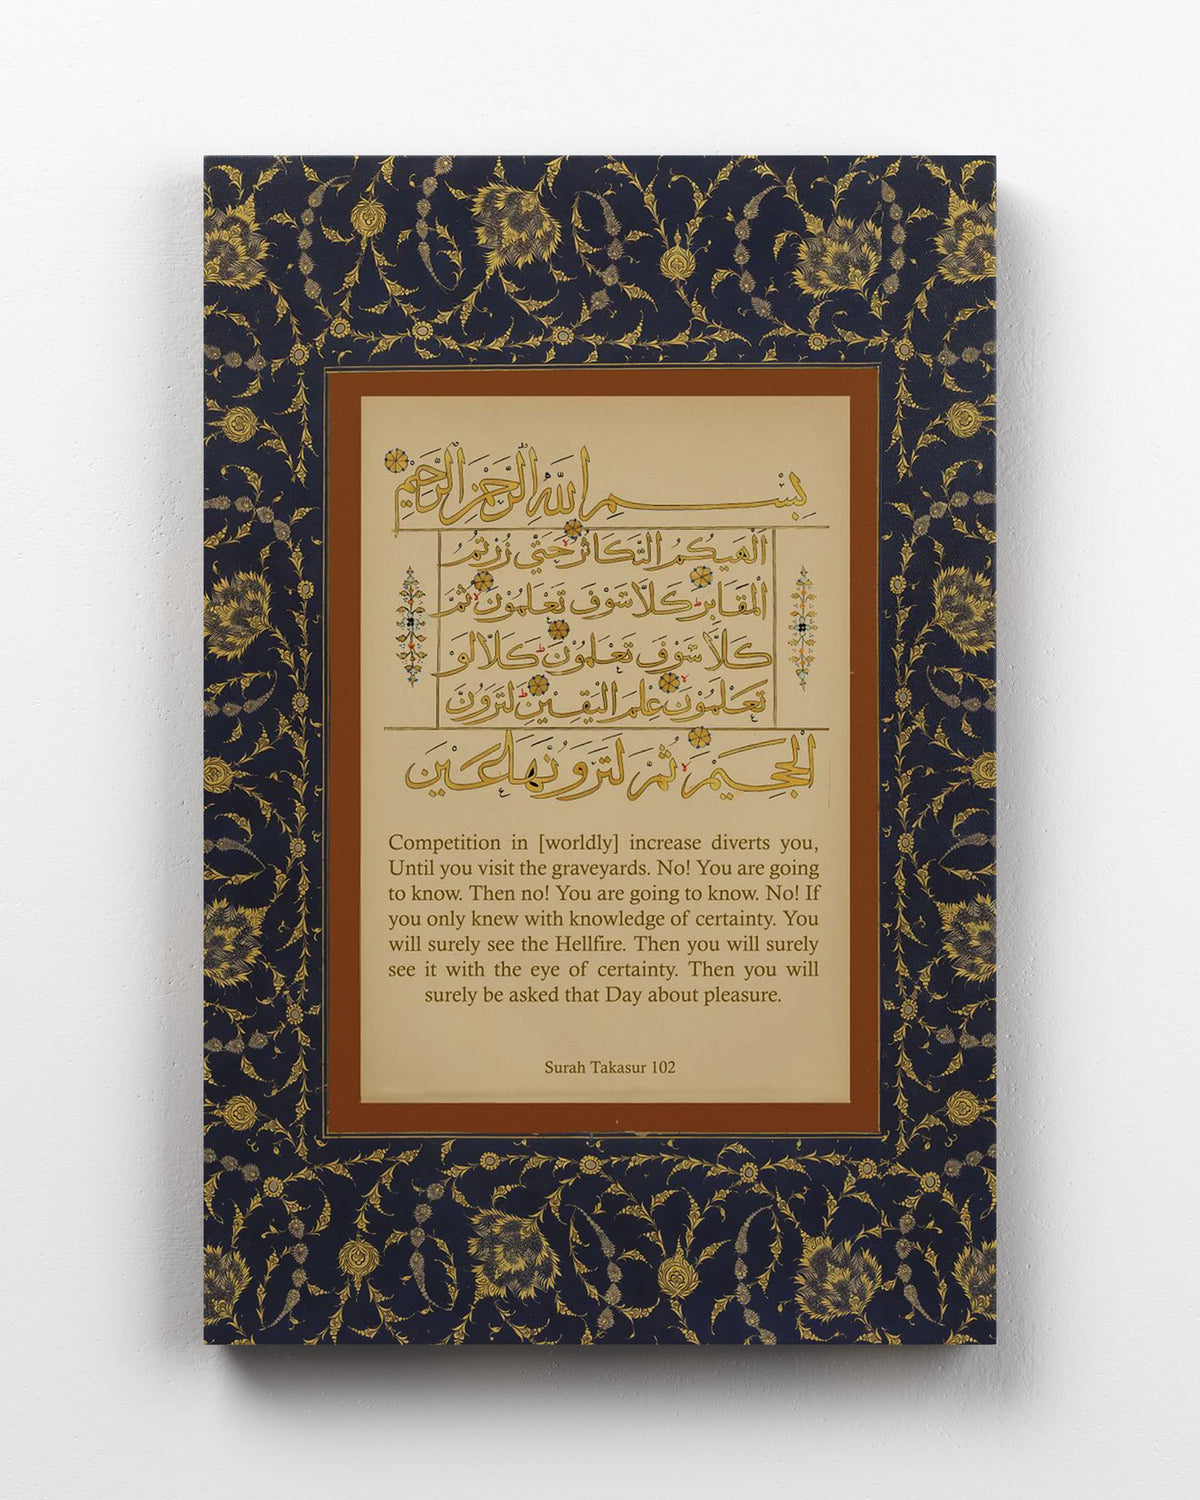 بِسْمِ اللَّهِ الرَّحْمَنِ الرَّحِيمِ
أَلْهَيكُمُ التَّكَاثُرُ حَتَّى زُرْتُمُ
الْمَقَابِرَ كَلَّا سَوْفَ تَعْلَمُونَ ثُمَّ
كَلَّا سَوْفَ تَعْلَمُونَ كَلَّا لَوْ
تَعْلَمُونَ عِلْمَ الْيَقِينِ لَتَرَوُنَّ
الْجَحِيمَ ثُمَّ لَتَرَوُنَّهَا عَيْنَ
Competition in [worldly] increase diverts you,
Until you visit the graveyards. No! You are going
to know. Then no! You are going to know. No! If
you only knew with knowledge of certainty. You
will surely see the Hellfire. Then you will surely
see it with the eye of certainty. Then you will
surely be asked that Day about pleasure.
Surah Takasur 102